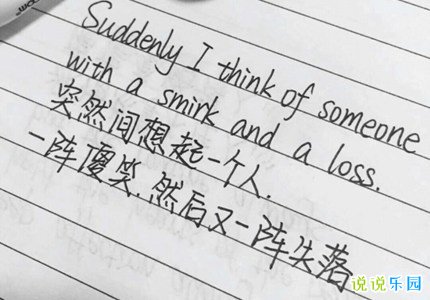 Suddenly I think of someone
with a smirk and a loss.
突然间想起一个人.
一阵傻笑.然后又一阵失落
说说乐园